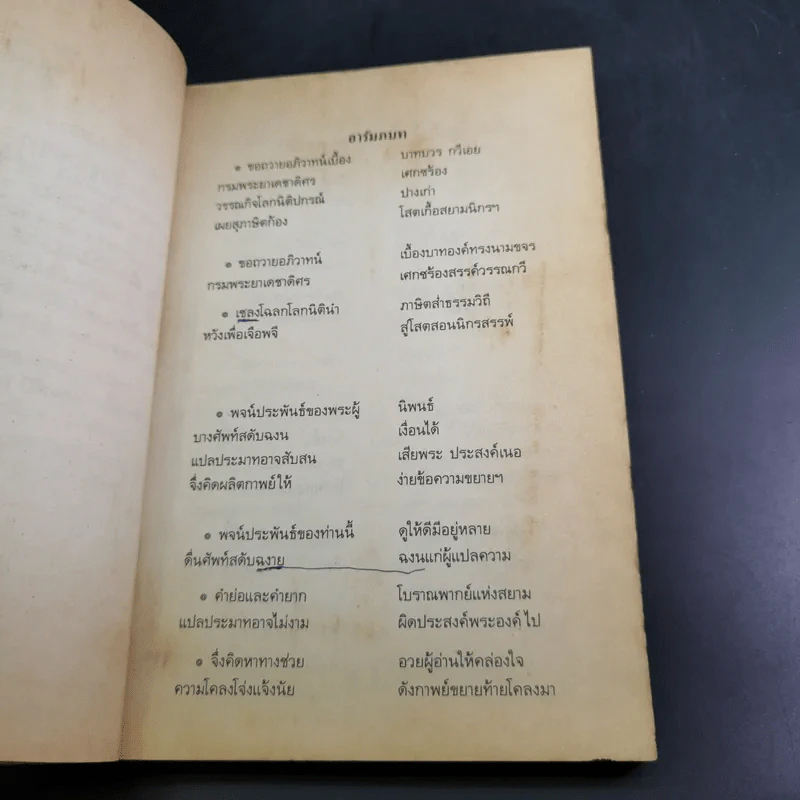 อารัมภบท
๏ ขอถวายอภิวาทน์เบื้อง บาทบวร กวีเอย
กรมพระยาเดชาดิศร เศกซร้อง
วรรณกิจโลกนิติปกรณ์ ปางเก่า
เผยสุภาษิตก้อง โสตเกื้อสยามนิกรฯ
๏ ขอถวายอภิวาทน์ เบื้องบาทองค์ทรงนามขจร
กรมพระยาเดชาดิศร เศกซร้องสรรค์วรรณกวี
๏ เชลงโฉลกโลกนิตินำ ภาษิตส่ำธรรมวิถี
หวังเพื่อเจือพจี สู่โสตสอนนิกรสรรพ์
๏ พจน์ประพันธ์ของพระผู้ นิพนธ์
บางศัพท์สดับฉงน เงื่อนได้
แปลประมาทอาจสับสน เสียพระ ประสงค์เนอ
จึ่งคิดผลิตกาพย์ให้ ง่ายข้อความขยายฯ
๏ พจน์ประพันธ์ของท่านนี้ ดูให้ดีมีอยู่หลาย
ดื่นศัพท์สดับฉงาย ฉงนแก่ผู้แปลความ
๏ คำย่อและคำยาก โบราณพากย์แห่งสยาม
แปลประมาทอาจไม่งาม ผิดประสงค์พระองค์ไป
๏ จึ่งคิดหาทางช่วย อวยผู้อ่านให้คล่องใจ
ความโคลงโจ่งแจ้งนัย ดังกาพย์ขยายท้ายโคลงมา